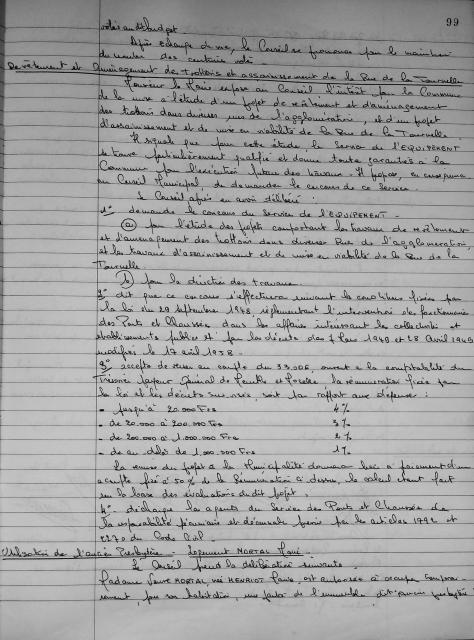 99
votés au budget
Après échange de vue, le Conseil se prononce pour le maintien
du nombre des centimes votés
Revêtement et Aménagement des trottoirs et assainissement de la Rue de la Tournelle
Monsieur le Maire expose au Conseil l'intérêt pour la Commune
de la mise à l'étude d'un projet de revêtement et d'aménagement
des trottoirs dans diverses rues de l'agglomération, et d'un projet
d'assainissement et de mise en viabilité de la Rue de la Tournelle.
Il signale que pour cette étude, le Service de l'EQUIPEMENT
se trouve particulièrement qualifié et donne toute garanties à la
Commune pour l'exécution future des travaux. Il propose, en conséquence
au Conseil Municipal, de demander le concours de ce Service.
Le Conseil après en avoir délibéré :
1° - demande le concours du Service de l'EQUIPEMENT -
a) pour l'étude des projets comportant les travaux de revêtement
et d'aménagement des trottoirs dans diverses Rues de l'agglomération,
et les travaux d'assainissement et de mise en viabilité de la Rue de la
Tournelle.
b) pour la direction des travaux.
2° - dit que ce concours s'effectuera suivant les conditions fixées par
la loi du 29 Septembre 1948, réglementant l'intervention des fonctionnaires
des Ponts et Chaussées dans les affaires intéressant les collectivités et
établissements publics et par les décrets des 7 Mars 1949 et 28 Avril 1949
modifiés le 17 avril 1958.
3° - accepte de verser au compte du 33.006, ouvert à la comptabilité du
Trésorier Payeur Général de la rémunération fixée par
la loi et les décrets sus-visés, soit par rapport aux dépenses :
- jusqu'à 20.000 Frs 4%
- de 20.000 à 200.000 Frs 3%
- de 200.000 à 1.000.000 Frs 2%
- de au delà de 1.000.000 Frs 1%
La remise du projet à la Municipalité donnera lieu à paiement d'un
acompte fixé à 50% de la rémunération ci dessus, le calcul étant fait
sur la base des évaluations du dit projet.
4° - décharge les agents du Service des Ponts et Chaussées de
la responsabilité pécuniaire et décennale prévue par les articles 1792 et
2270 du Code Civil.
Utilisation de l'ancien Presbytère - Logement MORTAL Marie.
Le Conseil prend la délibération suivante.
Madame Veuve MORTAL, née HENRIOT Marie, est autorisée à occuper temporai-
rement, pour son habitation, une partie de l'immeuble dit "ancien presbytère"